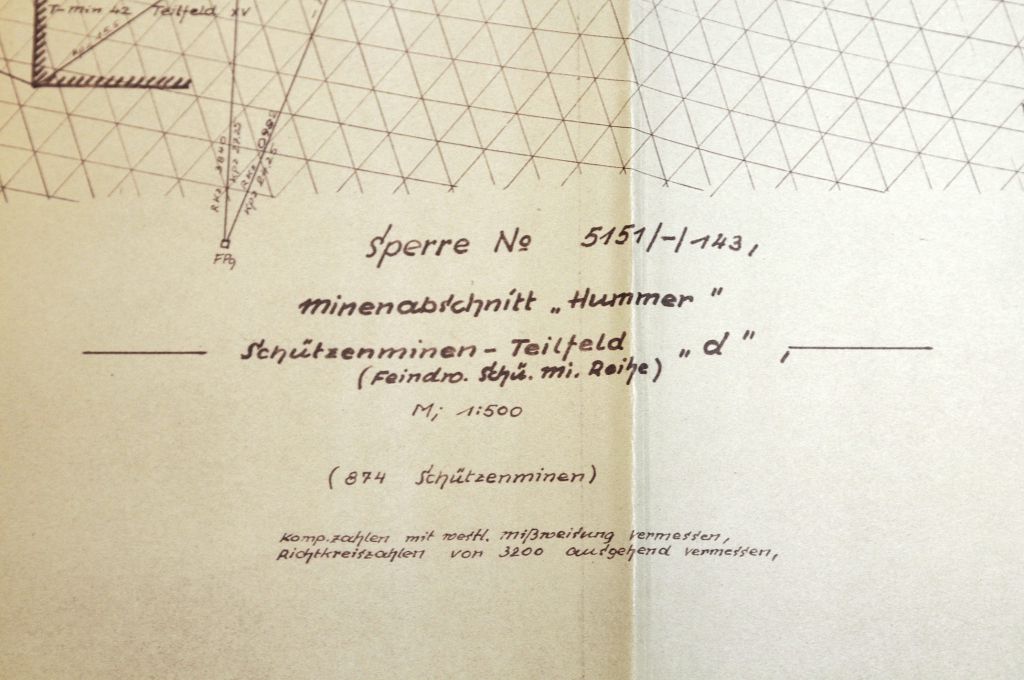 T-min 42 Teilfeld XV
FPg
Sperre No 5151/-/143,
Minenabschnitt „Hummer"
Schützenminen - Teilfeld „d",
(Feindw. Schü. mi. Reihe)
M; 1:500
(874 Schützenminen)
Komp.zahlen mit westl. Mißweisung vermessen,
Richtkreiszahlen von 3200 ausgehend vermessen,